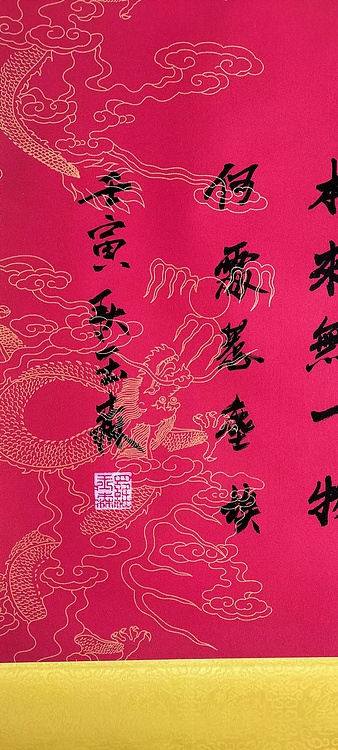 本來無一物
何處惹塵埃
壬寅秋玉森